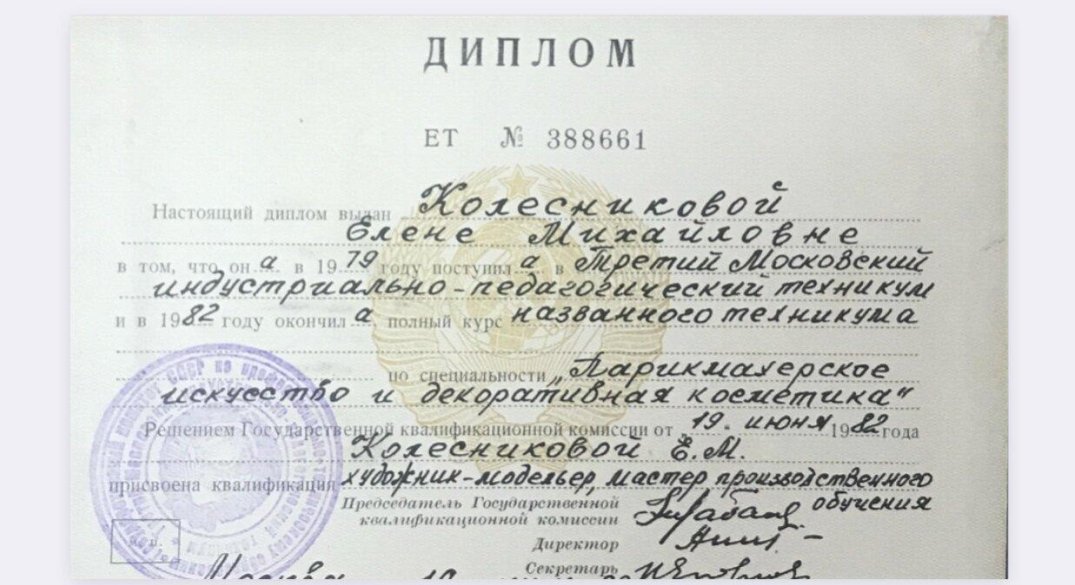 ДИПЛОМ
ЕТ № 388661
Настоящий диплом выдан Колесниковой
Елене Михайловне
в том, что он а в 1979 году поступил а в Третий Московский
индустриально-педагогический техникум
и в 1982 году окончил а полный курс названного техникума
по специальности „Парикмахерское
искусство и декоративная косметика"
Решением Государственной квалификационной комиссии от 19. июня 1982 года
Колесниковой Е.М.
присвоена квалификация художник-модельер, мастер производственного
обучения
Председатель Государственной
квалификационной комиссии
Директор
Секретарь
Москва